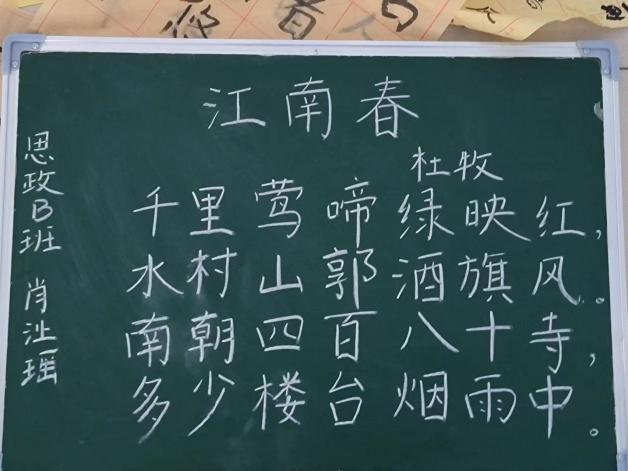 江南春
杜牧
千里莺啼绿映红,
水村山郭酒旗风。
南朝四百八十寺,
多少楼台烟雨中。
思政B班 肖沚瑶